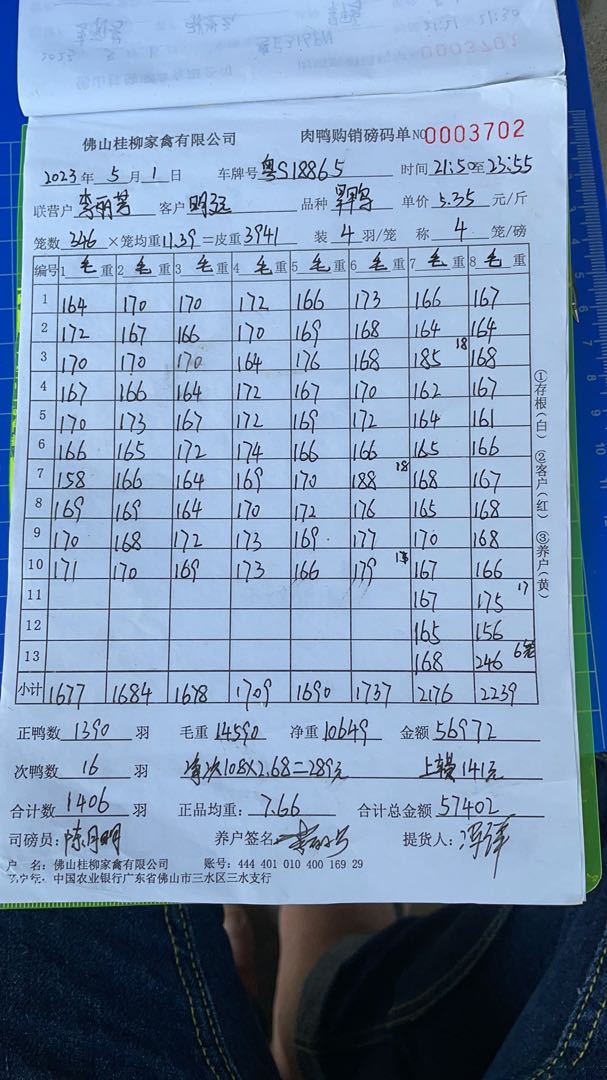 0003702
佛山桂柳家禽有限公司 肉鸭购销磅码单 NO 0003702
2023年 5月 1日 车牌号 粤S18865 时间 21:50至23:55
联营户 客户 明远 品种 单价 5.35 元/斤
笼数 346 ×笼均重 11.39 =皮重 3941 装 4 羽/笼 称 4 笼/磅
编号 1毛重 2毛重 3毛重 4毛重 5毛重 6毛重 7毛重 8毛重
1 164 170 170 172 166 173 166 167
2 172 167 166 170 169 168 164 164
3 170 170 170 164 176 168 185 18 168
4 167 166 164 172 167 170 162 167
5 170 173 167 172 169 172 164 161
6 166 165 172 174 166 166 165 166
7 158 166 164 169 170 188 18 168 167
8 169 169 164 170 172 176 165 168
9 170 168 172 173 169 177 170 168
10 171 170 169 173 166 179 167 166
11 167 175 17
12 165 156
13 168 246 6笼
小计 1677 1684 1678 1709 1690 1737 2176 2239
正鸭数 1390 羽 毛重 14590 净重 10649 金额 56972
次鸭数 16 羽 净次108×2.68=289元 上 141元
合计数 1406 羽 正品均重: 7.66 合计总金额 57402
司磅员: 陈月明 养户签名: 提货人:
户 名: 佛山桂柳家禽有限公司 账号: 444 401 010 400 169 29
中国农业银行广东省佛山市三水区三水支行
①存根(白) ②客户(红) ③养户(黄)